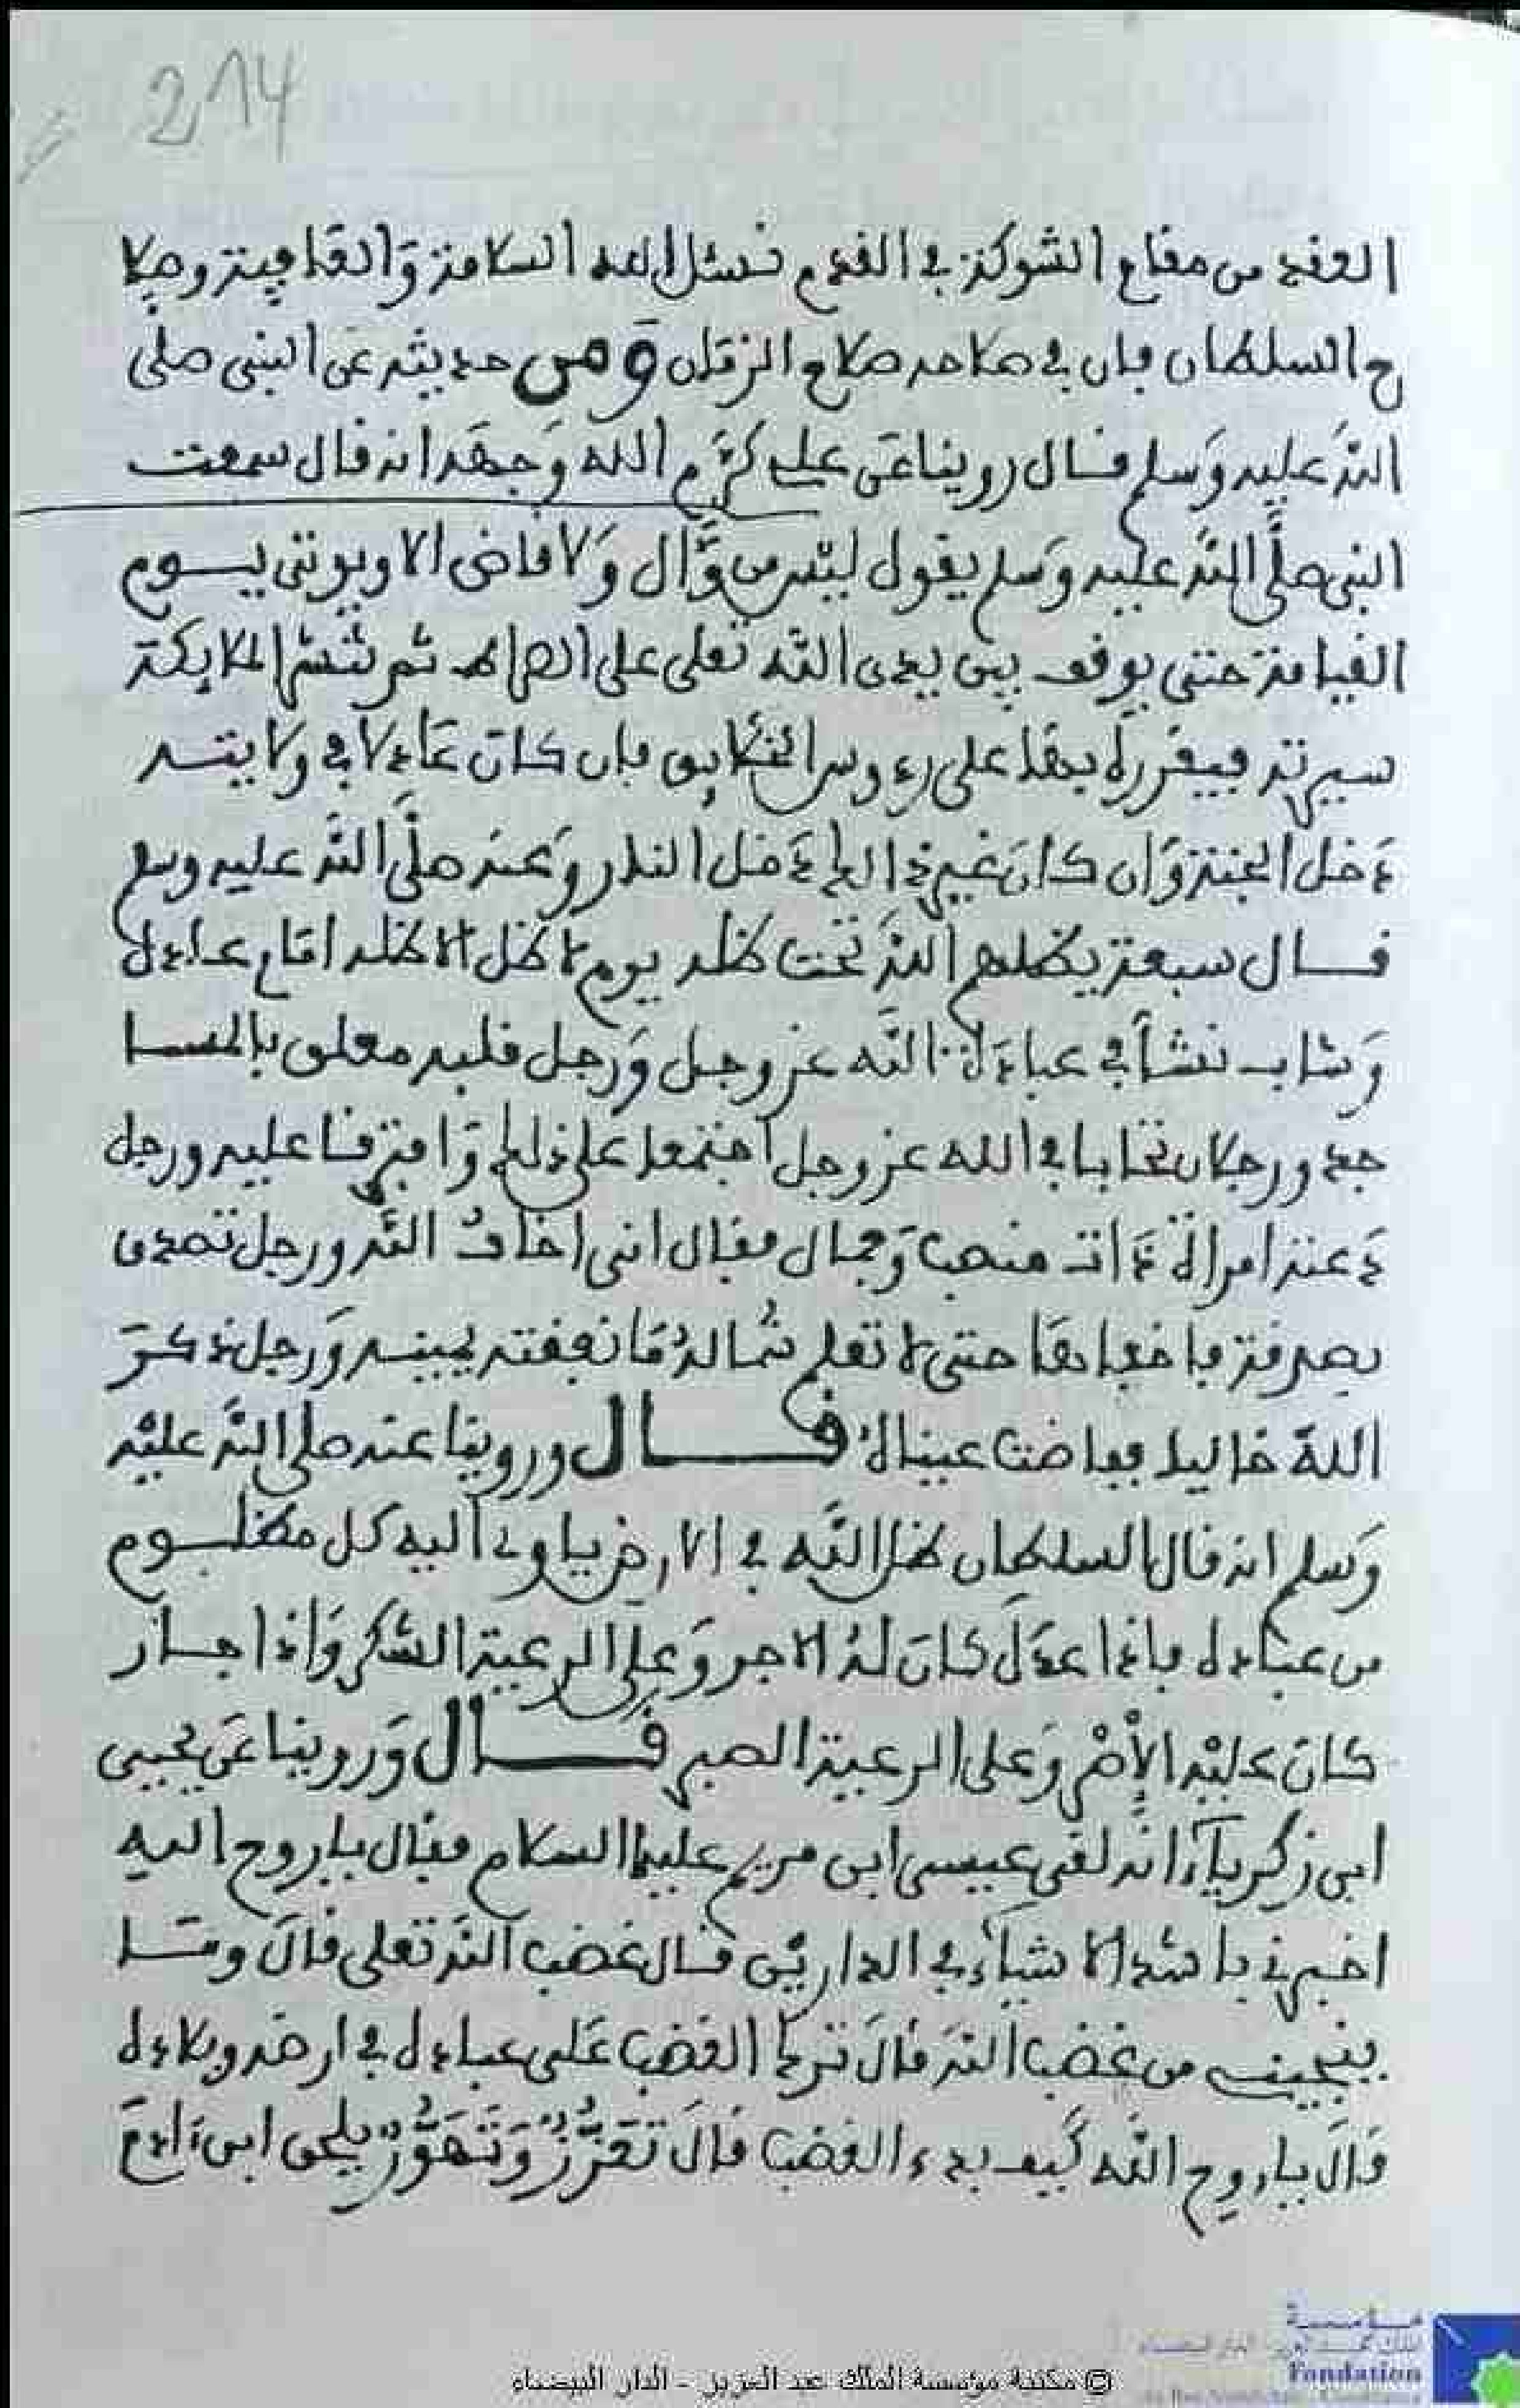 214
العقد من مقام الشوكة في القدم نسئل الله السلامة وَالعَافية وصلا
ح السلطان فإن في صلاحه صلاح الزمَان وَمن حديثه عَن النبي صلى
اللهُ عليه وَسلم قال روينا عَن علي كرَّم الله وَجهَه انه قال سمعت
النبي صلَّى اللهُ عليه وسلم يقول ليْس من وَّال وَلا قاضى الا ويوتى يوم
القيامة حتى يوقف بين يدى الله تعلى على الصراط ثم تنشر الملايكة
سيرته فيقرر له بهَا على رءوس الخلايق فإن كان عَادلا في ولايته
دخل الجنة وَان كان غير ذالك دخل النار وَعنه صلَّى اللهُ عليه وسلم
قال سبعة يظلهم اللهُ تحت ظله يوم لا ظل الا ظله امَام عادل
وَشاب نشأ في عبادة الله عز وجل وَرجل قلبه معلق بالمسا
جد ورجلان تحابا في الله عز وجل اجتمعا على ذلك وَافترقا عليه ورجل
دعته امراة ذات منصب وَجمال فقال انى اخاف اللهَ ورجل تصدق
بصدقة فاخفاهَا حتى لا تعلم شماله مَا نفقته يمينه وَرجل ذكرَ
اللهَ خاليا ففاضت عيناهُ قال وروينا عنه صلى اللهُ عليْه
وَسلم انه قال السلطان ظل اللّه في الارض ياوى اليه كل مظلوم
من عباده فإذا عدَل كانَ لهُ الاجر وَعلى الرعية الشكر وَاذا جار
كانَ عليْه الإصْر وَعلى الرعية الصبر قال وَروينا عَن يحيى
ابن زكرياءَ انه لقي عيسى ابن مريم عليهما السلام فقال يا روح الله
اخبرني باشد الاشياء في الدارين قال غضب اللهَ تعلى قالَ وما
ينجينى من غضب اللهَ قالَ ترك الغضب عَلى عباده في ارضه وبلاده
قالَ يا روح الله كيف بدء الغضب قالَ تعَزُّز وَتهَوُّر يلحق ابن ءادمَ
© مكتبة مؤسسة الملك عبد العزيز - الدار البيضاء
Fondation